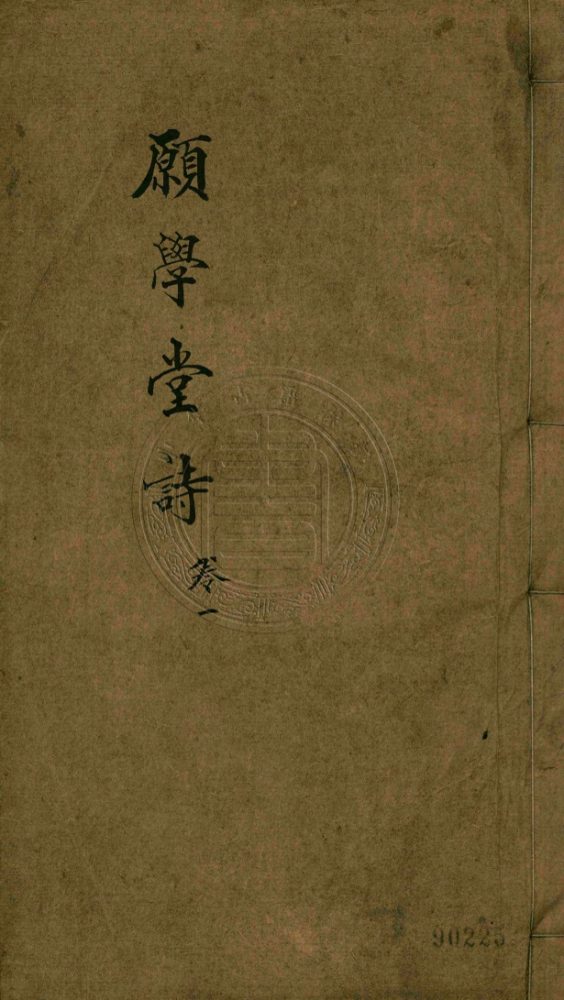 願學堂詩
卷一
90225